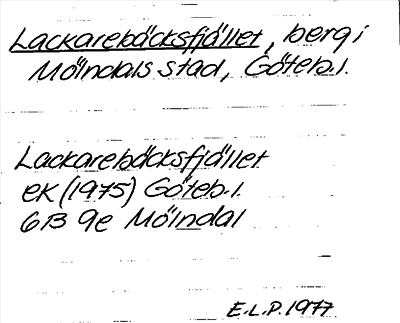 Lackarebäcksfjället, berg i
Mölndals stad, Göteb.l.
Lackarebäcksfjället
ek (1975) Göteb.l.
6B 9e Mölndal
E.L.P. 1977